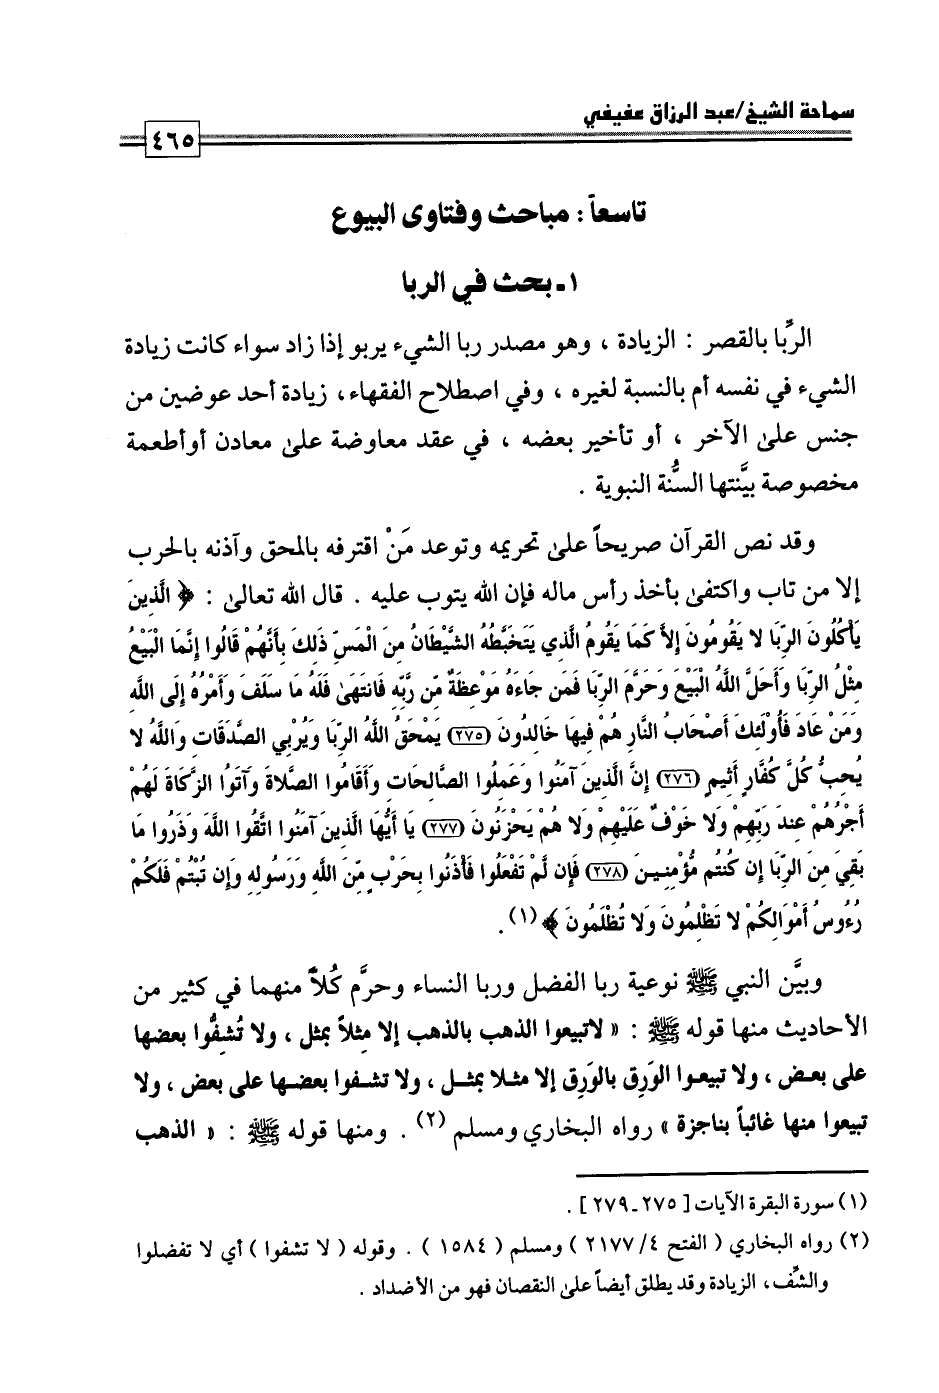 سماحة الشيخ/عبد الرزاق عفيفي
٤٦٥
تاسعاً : مباحث وفتاوى البيوع
١ـ بحث في الربا
الرِّبا بالقصر : الزيادة ، وهو مصدر ربا الشيء يربو إذا زاد سواء كانت زيادة
الشيء في نفسه أم بالنسبة لغيره ، وفي اصطلاح الفقهاء، زيادة أحد عوضين من
جنس علىٰ الآخر ، أو تأخير بعضه ، في عقد معاوضة علىٰ معادن أوأطعمة
مخصوصة بيَّنتها السُّنة النبوية .
وقد نص القرآن صريحاً علىٰ تحريمه وتوعد مَنْ اقترفه بالمحق وآذنه بالحرب
إلا من تاب واكتفىٰ بأخذ رأس ماله فإن الله يتوب عليه . قال الله تعالىٰ : ﴿ الَّذِينَ
يَأْكُلُونَ الرِّبَا لا يَقُومُونَ إِلاَّ كَمَا يَقُومُ الَّذِي يَتَخَبَّطُهُ الشَّيْطَانُ مِنَ الْمَسِّ ذَلِكَ بِأَنَّهُمْ قَالُوا إِنَّمَا الْبَيْعُ
مِثْلُ الرِّبَا وَأَحَلَّ اللَّهُ الْبَيْعَ وَحَرَّمَ الرِّبَا فَمَن جَاءَهُ مَوْعِظَةٌ مِّن رَّبِّهِ فَانتَهَىٰ فَلَهُ مَا سَلَفَ وَأَمْرُهُ إِلَى اللَّهِ
وَمَنْ عَادَ فَأُوْلَئِكَ أَصْحَابُ النَّارِ هُمْ فِيهَا خَالِدُونَ (٢٧٥) يَمْحَقُ اللَّهُ الرِّبَا وَيُرْبِي الصَّدَقَاتِ وَاللَّهُ لا
يُحِبُّ كُلَّ كَفَّارٍ أَثِيمٍ (٢٧٦) إِنَّ الَّذِينَ آمَنُوا وَعَمِلُوا الصَّالِحَاتِ وَأَقَامُوا الصَّلاةَ وَآتَوُا الزَّكَاةَ لَهُمْ
أَجْرُهُمْ عِندَ رَبِّهِمْ وَلا خَوْفٌ عَلَيْهِمْ وَلا هُمْ يَحْزَنُونَ (٢٧٧) يَا أَيُّهَا الَّذِينَ آمَنُوا اتَّقُوا اللَّهَ وَذَرُوا مَا
بَقِيَ مِنَ الرِّبَا إِن كُنتُم مُّؤْمِنِينَ (٢٧٨) فَإِن لَّمْ تَفْعَلُوا فَأْذَنُوا بِحَرْبٍ مِّنَ اللَّهِ وَرَسُولِهِ وَإِن تُبْتُمْ فَلَكُمْ
رُءُوسُ أَمْوَالِكُمْ لا تَظْلِمُونَ وَلا تُظْلَمُونَ ﴾ (١) .
وبيَّن النبي ﷺ نوعية ربا الفضل وربا النساء وحرَّم كُلاًّ منهما في كثير من
الأحاديث منها قوله ﷺ : « لاتبيعوا الذهب بالذهب إلا مِثلاً بمثل ، ولا تُشفُّوا بعضها
على بعض ، ولا تبيعوا الوَرِق بالوَرِق إلا مثلا بمثل ، ولا تشفوا بعضها على بعض ، ولا
تبيعوا منها غائباً بناجزة » رواه البخاري ومسلم (٢) . ومنها قوله ﷺ : « الذهب
(١) سورة البقرة الآيات [ ٢٧٥ـ٢٧٩ ] .
(٢) رواه البخاري ( الفتح ٤/ ٢١٧٧ ) ومسلم ( ١٥٨٤ ) . وقوله ( لا تشفوا ) أي لا تفضلوا
والشِّف، الزيادة وقد يطلق أيضاً علىٰ النقصان فهو من الأضداد .